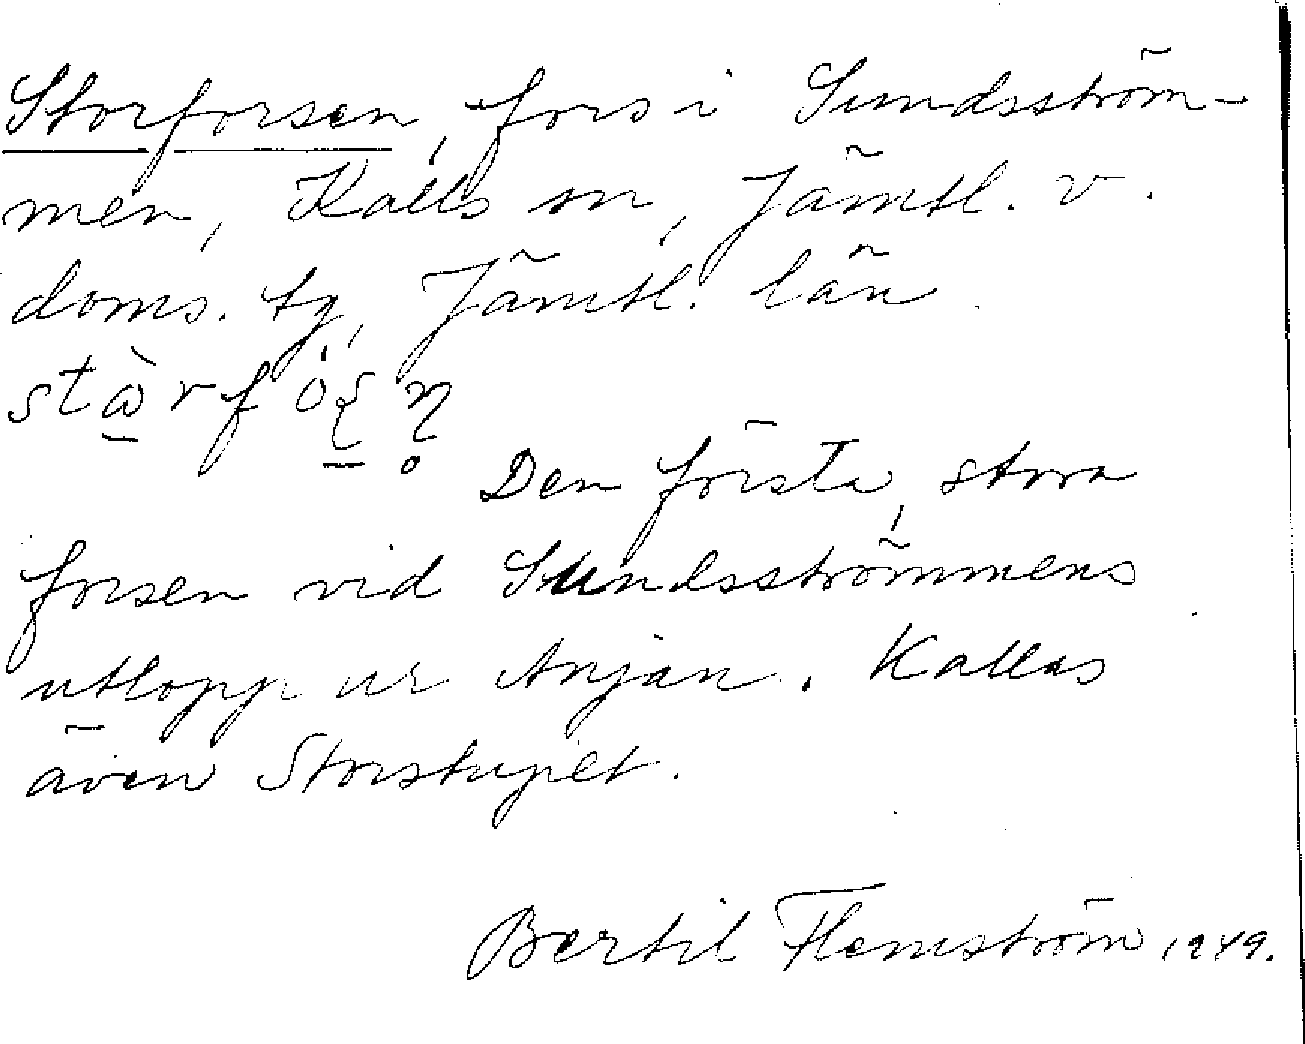 Storforsen, fors i Sundsström-
men, Kalls sn, Jämtl. v.
doms. tg, Jämtl. län
Den första, stora
forsen vid Sundsströmmens
utlopp ur Anjan. Kallas
även Storstupet.
Bertil Flemström 1949.